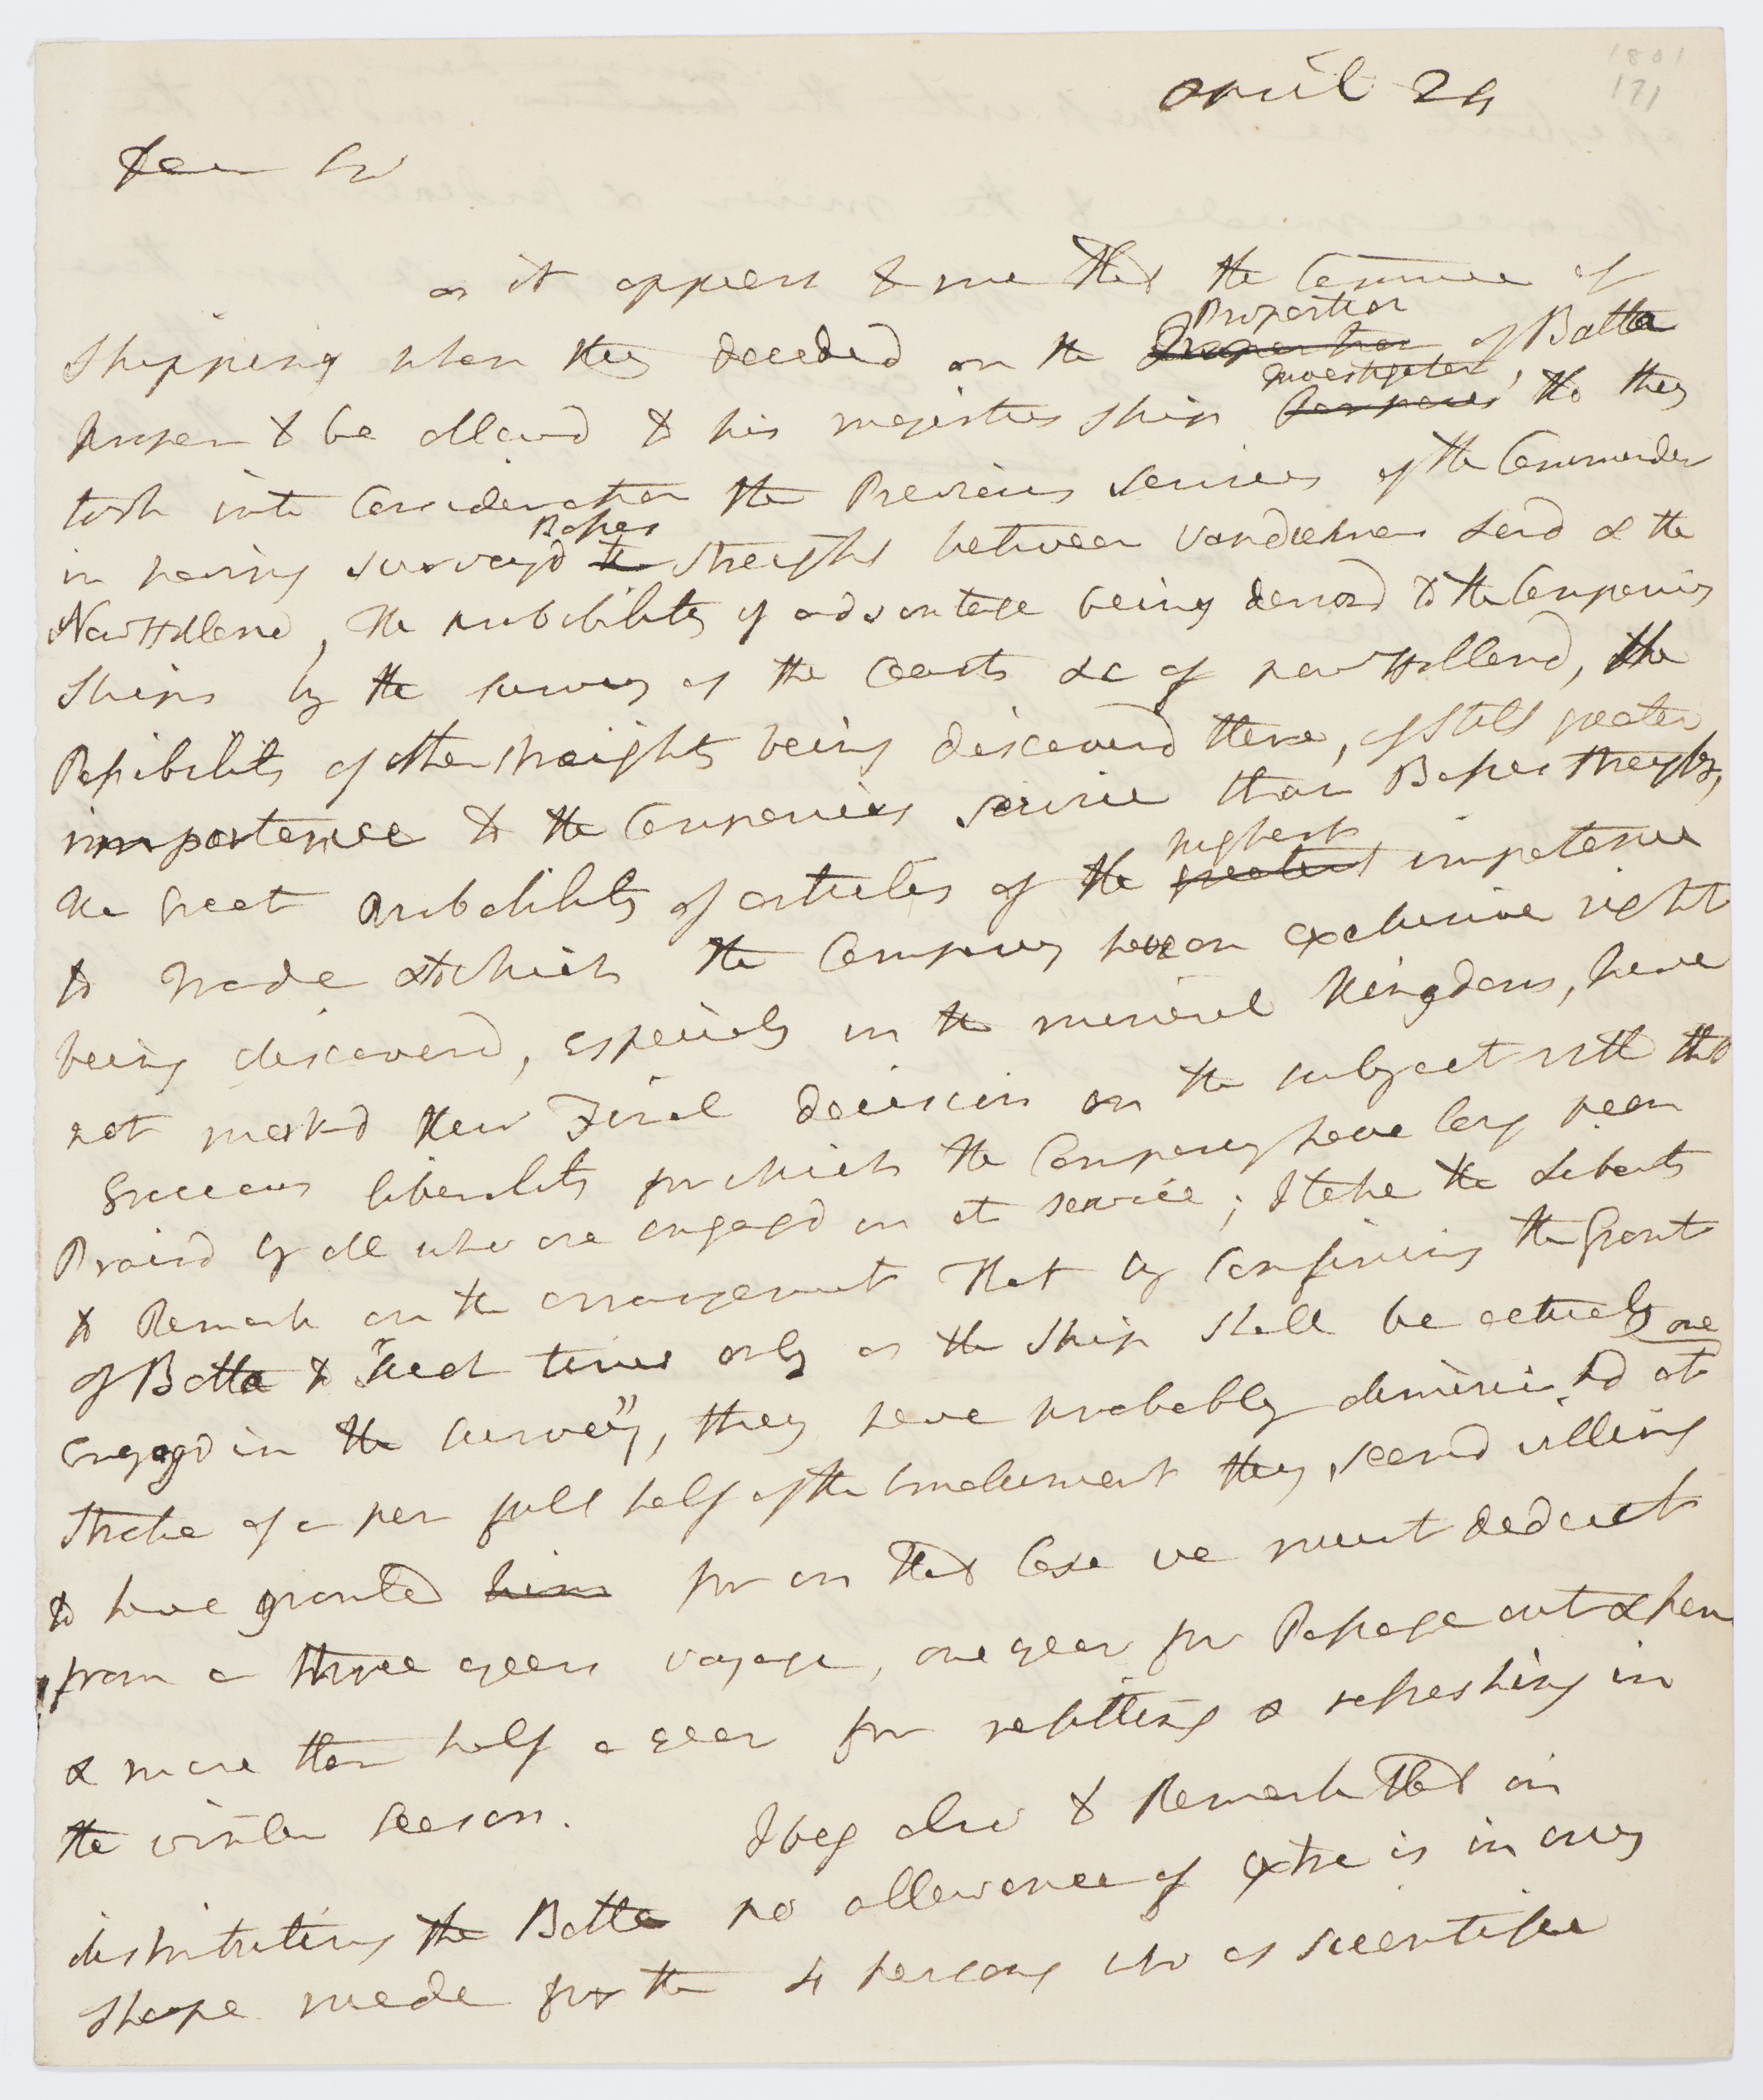 1801
171
April 29
Dear Sir
as it appears to me that the Committee of
Shipping when they decided on the Proportion of Batta
proper to be allowd to his majesties Ship Investigator, tho they
took into Consideration the Previous services of the Commander
in having surveyd Basses Streight between Vandiemens Land & the
New Holland, the probability of advantage being derivd to the Companies
Ships by the survey of the Coasts &c of new Holland, the
Possibility of other streights being discoverd there, of still greater
importance to the Companies service than Basses streights,
the great probability of articles of the highest importance
to trade to which the Company have an exclusive right
being discoverd, especialy in the mineral Kingdom, have
not markd their Final decision on the subject with that
Gracious liberality for which the Company have long been
Praisd by all who are engagd in it service; I take the Liberty
to Remark on the arrangement that by Confining the Grant
of Batta to "such times only as the Ship shall be actualy
engagd in the survey", they have probably diminishd at one
stroke of a pen full half of the Emolument they seemd willing
to have granted him for in that Case we must deduct
from a three years voyage, one year for Passage out & hom
& more than half a year for refitting & refreshing in
the winter season. I beg also to Remark that in
distributing the Batta no allowance of extra is in any
shape made for the 4 persons who as scientific